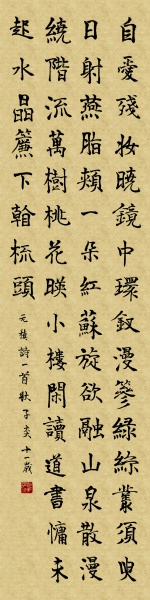 自愛殘妝曉鏡中環釵漫篸綠絲叢須臾
日射燕脂頰一朵紅蘇旋欲融山泉散漫
繞階流萬樹桃花暎小樓閑讀道書慵未
起水晶簾下看梳頭
元稹詩一首 子奕十一歲